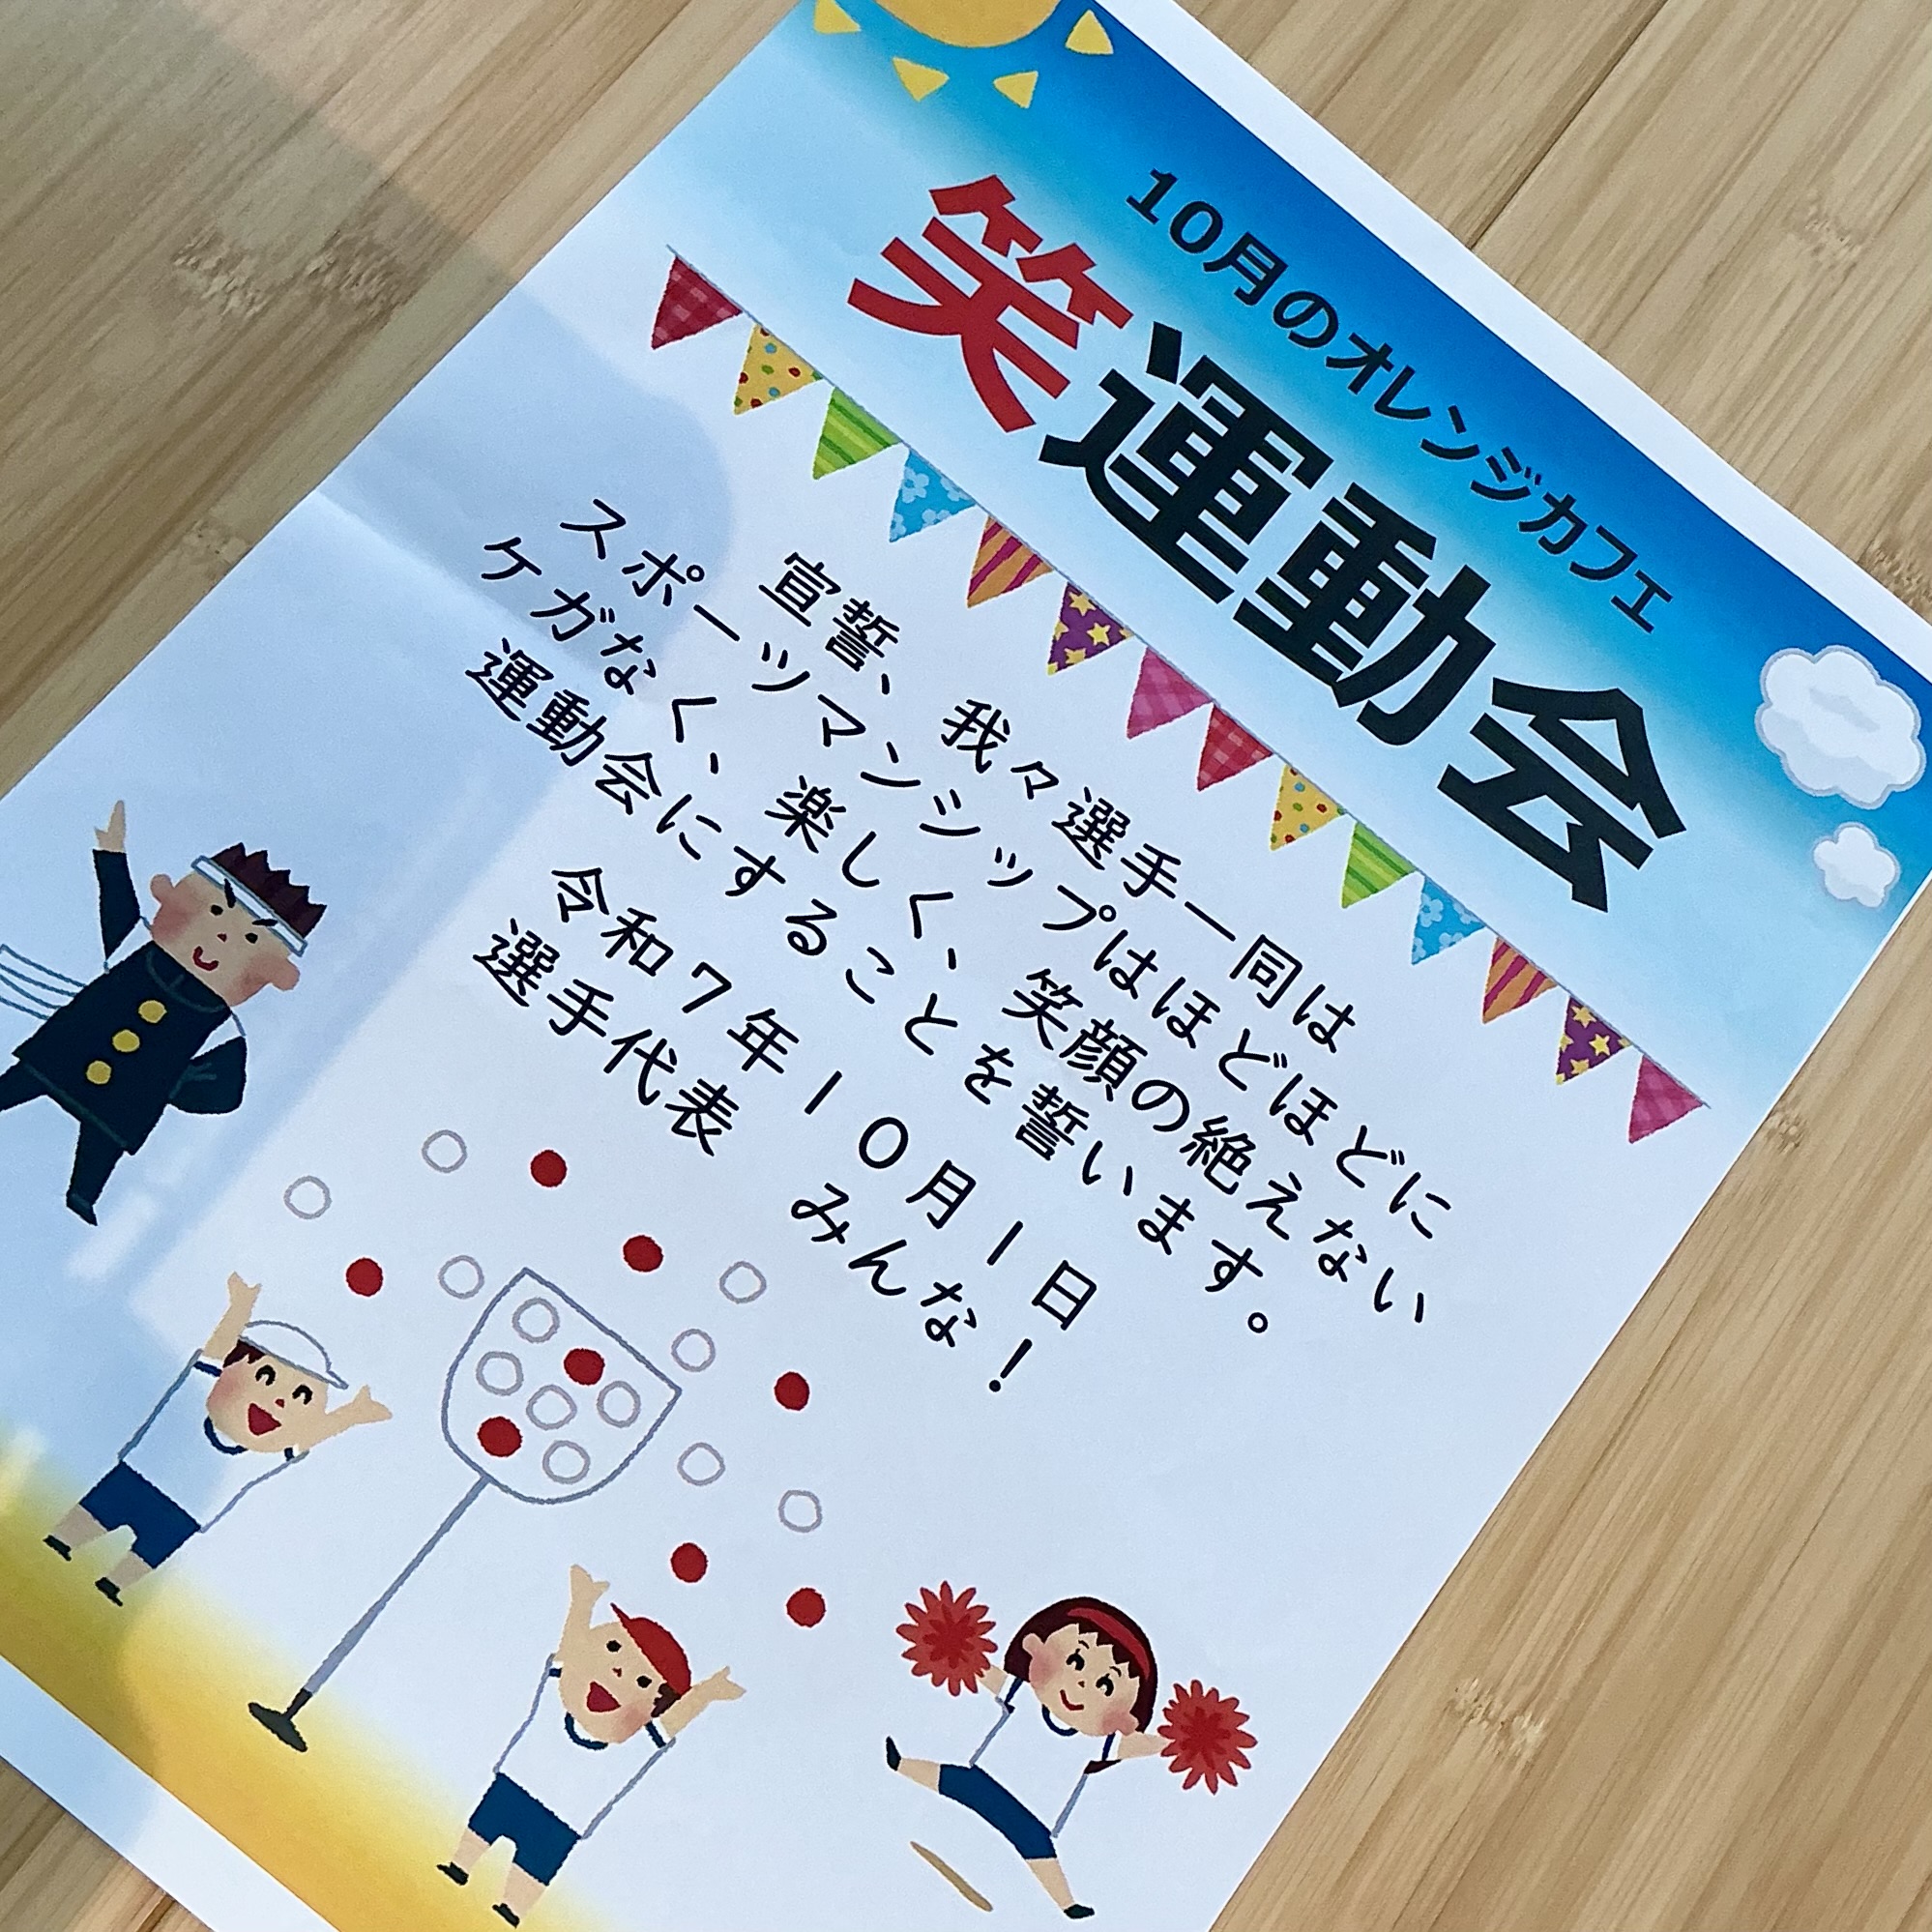 10月のオレンジカフェ
笑運動会
宣誓、我々選手一同は
スポーツマンシップはほどほどに
ケガなく、楽しく、笑顔の絶えない
運動会にすることを誓います。
令和7年10月1日
選手代表 みんな！